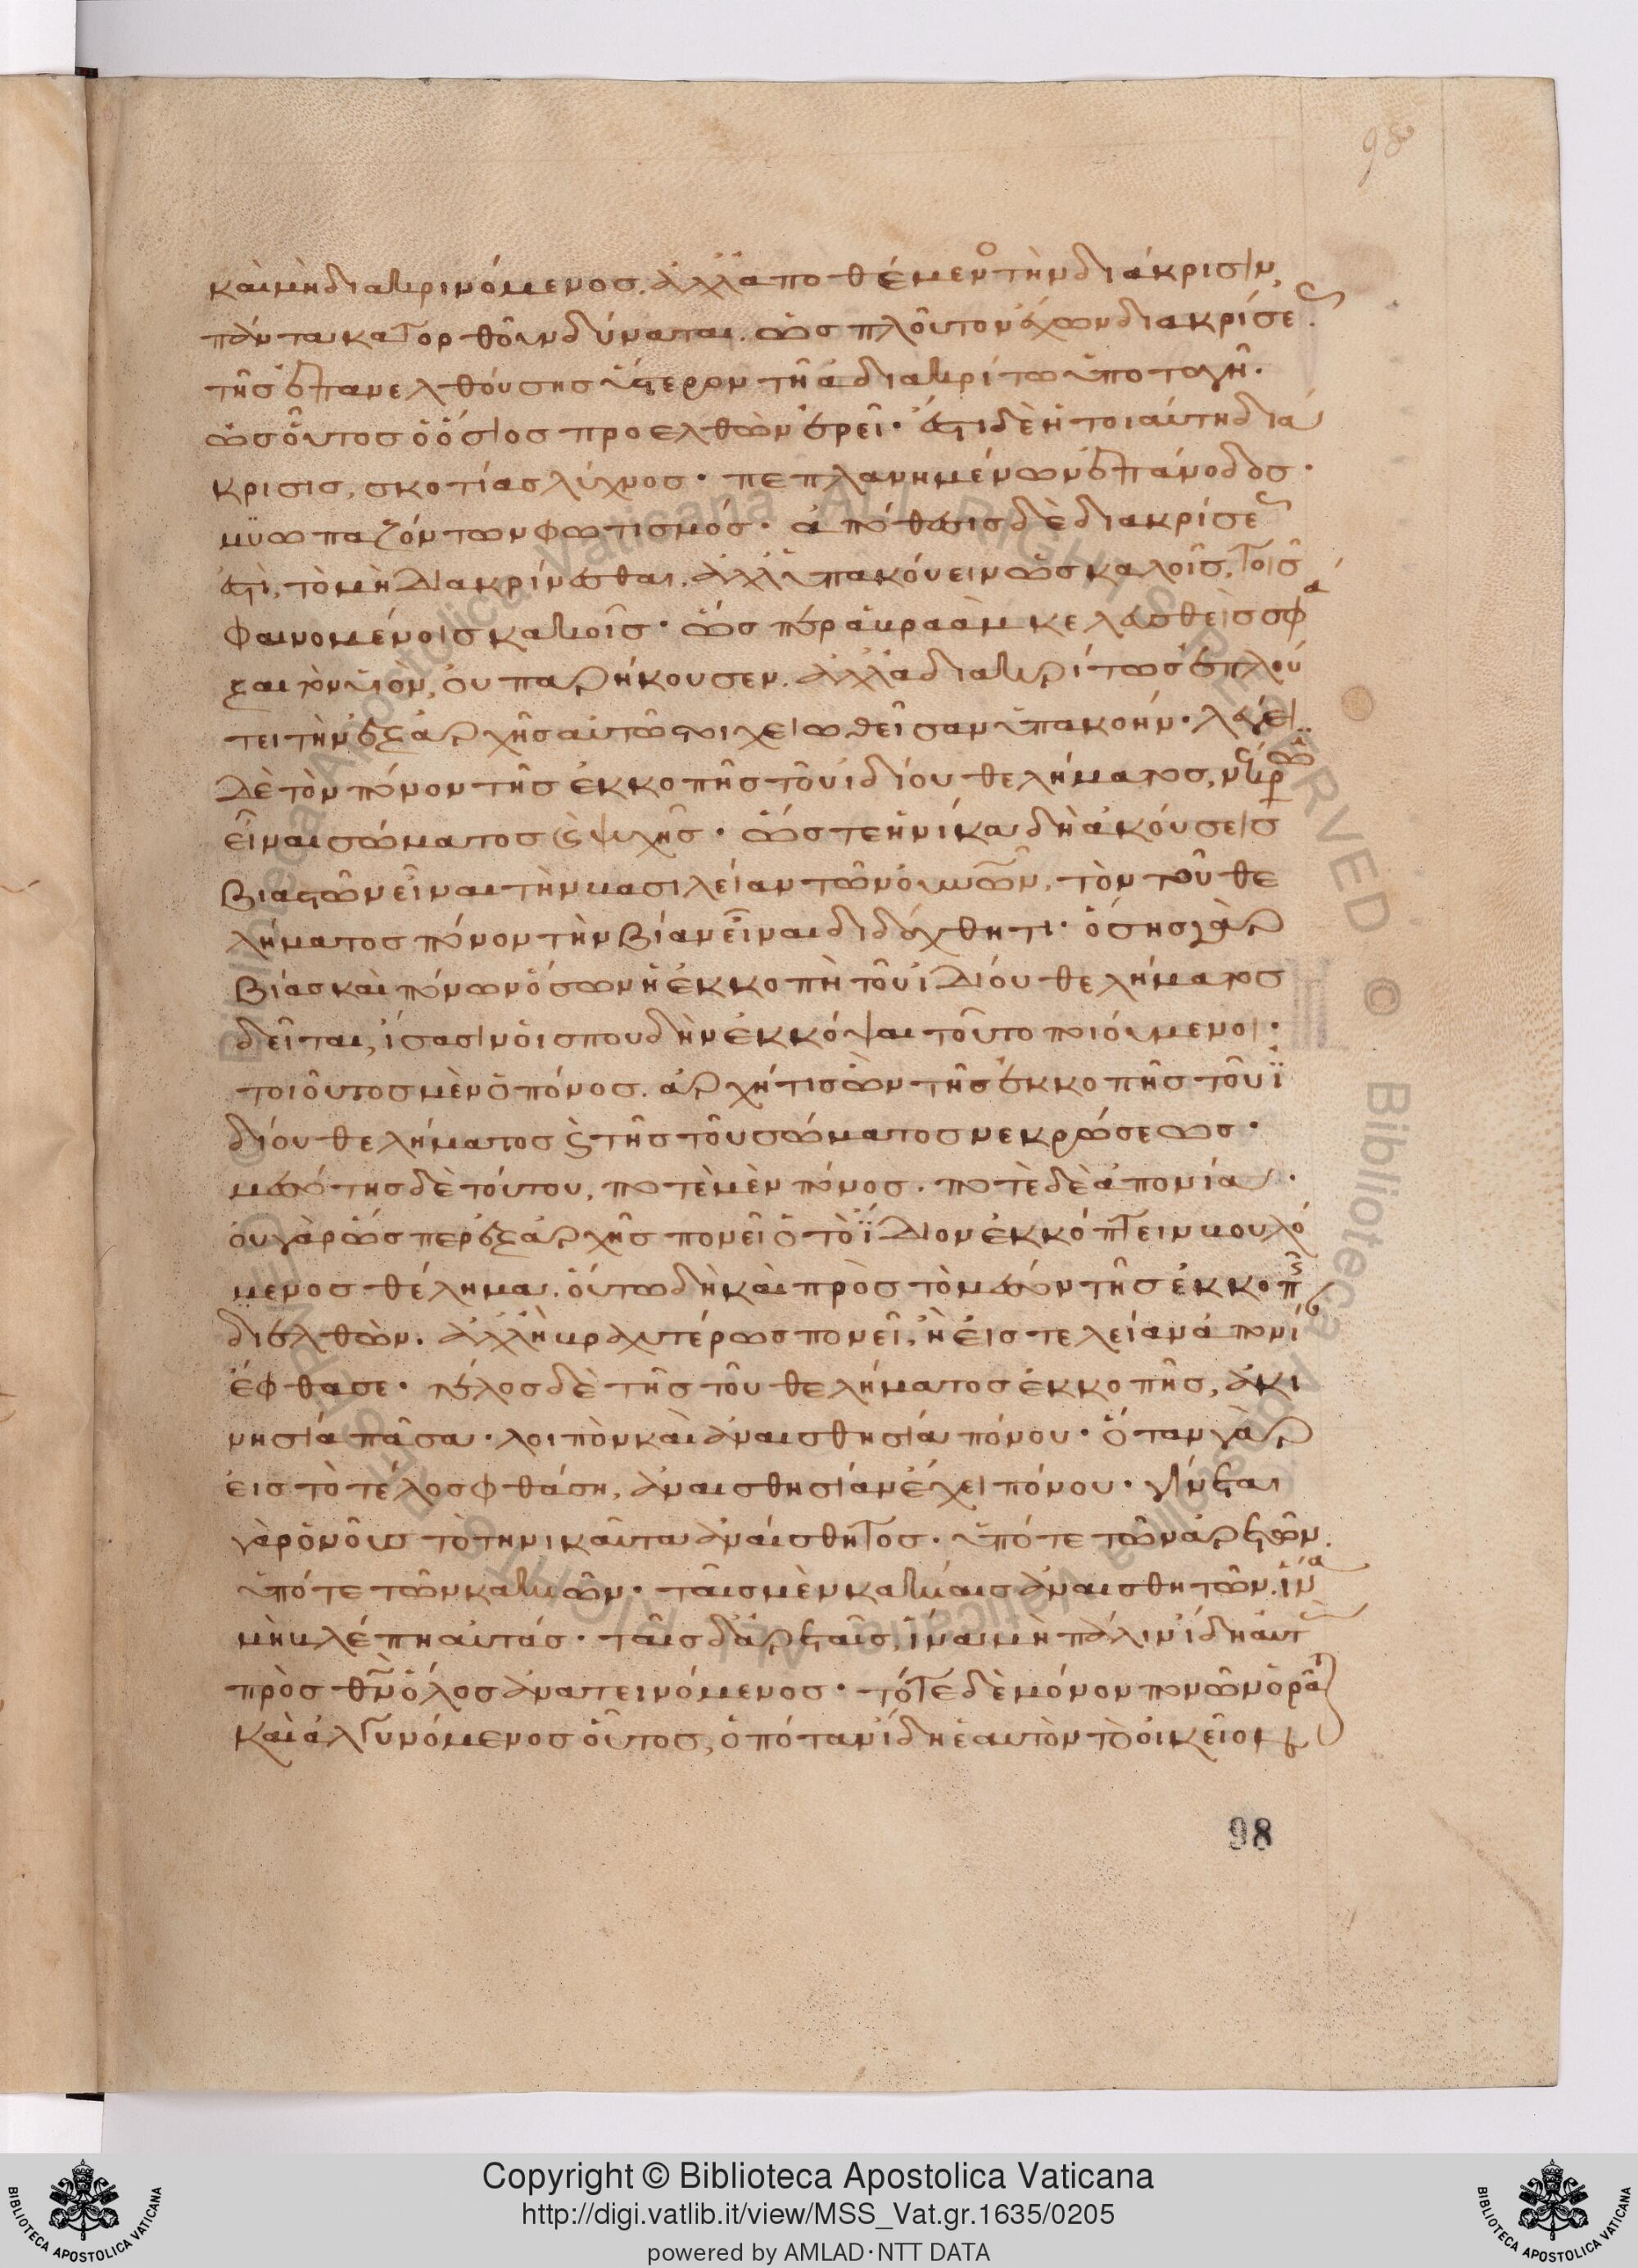 98
καὶ μὴ διακρινόμενος. ἀλλ' ἀποθέμενος τὴν διάκρισιν,
πάντα κατορθοῦν δύναται. ὡς πλοῦτον ἔχων διακρίσεως
τῆς ἐπανελθούσης ὕστερον τῇ ἀδιακρίτω ὑποταγῇ.
ὡς οὗτος ὁ ὅσιος προελθὼν ἐρεῖ. ἔστι δὲ ἡ τοιαύτη διά
κρισις, σκοτίας λύχνος. πεπλανημένων ἐπάνοδος.
μϋωπαζόντων φωτισμός. ἀπόθεσις δὲ διακρίσεως
ἐστὶ, τὸ μὴ διακρίνεσθαι. ἀλλ' ὑπακούειν ὡς καλοῖς, τοῖς
φαινομένοις κακοῖς. ὥσπερ ἀβραὰμ κελευσθεὶς σφά
ξαι τὸν υἱὸν, οὐ παρήκουσεν. ἀλλ' ἀδιακρίτως ἐπλού
τει τὴν ἐξ ἀρχῆς αὐτῶ στοιχειωθεῖσαν ὑπακοήν. λέγει
δὲ τὸν πόνον τῆς ἐκκοπῆς τοῦ ἰδίου θελήματος, νέκρωσιν
εἶναι σώματος καὶ ψυχῆς. ὥστε ἡνίκα δὴ ἀκούσεις
βιαστῶν εἶναι τὴν βασιλείαν τῶν οὐνῶν, τὸν τοῦ θε
λήματος πόνον τὴν βίαν εἶναι διδάχθητι. ὅσης γὰρ
βίας καὶ πόνων ὅσων ἡ ἐκκοπὴ τοῦ ἰδίου θελήματος
δεῖται, ἴσασιν οἱ σπουδὴν ἐκκόψαι τοῦτο ποιούμενοι.
τοιοῦτος μὲν ὁ πόνος. ἀρχή τις ὢν τῆς ἐκκοπῆς τοῦ ϊ
δίου θελήματος καὶ τῆς τοῦ σώματος νεκρώσεως.
μεσότης δὲ τούτου, ποτὲ μὲν πόνος. ποτὲ δὲ ἀπονία.
οὐ γὰρ ὥσπερ ἐξ ἀρχῆς πονεῖ ὁ τὸ ἴδιον ἐκκόπτειν βουλό
μενος θέλημα. οὕτω δὴ καὶ πρὸς τὸ μέσον τῆς ἐκκοπῆς
διελθών. ἀλλ' ἢ βραχυτέρως πονεῖ, ἢ εἰς τελείαν ἀπονίαν
ἔφθασε. τέλος δὲ τῆς τοῦ θελήματος ἐκκοπῆς, ἀκι
νησία πᾶσα. λοιπὸν καὶ ἀναισθησία πόνου. ὅταν γὰρ
εἰς τὸ τέλος φθάση, ἀναισθησίαν ἔχει πόνου. γίνεται
γὰρ ὁ νοῦς τὸ τηνικαῦτα ἀναίσθητος. ὑπό τε τῶν ἀρετῶν.
ὑπό τε τῶν κακιῶν. ταῖς μὲν κακίαις ἀναισθητῶν. ἵνα
μὴ βλέπη αὐτάς. ταῖς δ' ἀρεταῖς, ἵνα μὴ πάλιν ἴδη αὐτὰς
πρὸς θν ὅλος ἀνατεινόμενος. τότε δὲ μόνον πονῶν ὁρᾶται
καὶ ἀλγυνόμενος οὗτος, ὁπόταν ἴδη ἑαυτὸν τὸ οἰκεῖον
98
Copyright © Biblioteca Apostolica Vaticana
http://digi.vatlib.it/view/MSS_Vat.gr.1635/0205
powered by AMLAD·NTT DATA
BIBLIOTECA APOSTOLICA VATICANA
BIBLIOTECA APOSTOLICA VATICANA